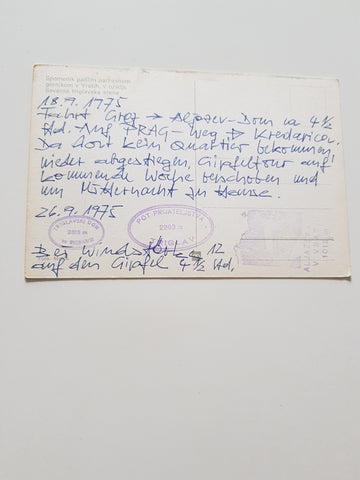 Spomenik padlim partizanom
gornikom v Vratih, v ozadju
Severna triglavska stena
18.9.1975
Fahrt Graz → Aljazev-Dom ca 4½
Std. Auf PRAG-Weg → Kredarica.
Da dort kein Quartier bekommen
wieder abgestiegen, Gipfeltour auf
kommende Woche verschoben und
um Mitternacht zu Hause.
26.9.1975
POT PRIJATELJSTVA
TRIGLAV
Bei Windstärke 12
auf den Gipfel 4½ Std.